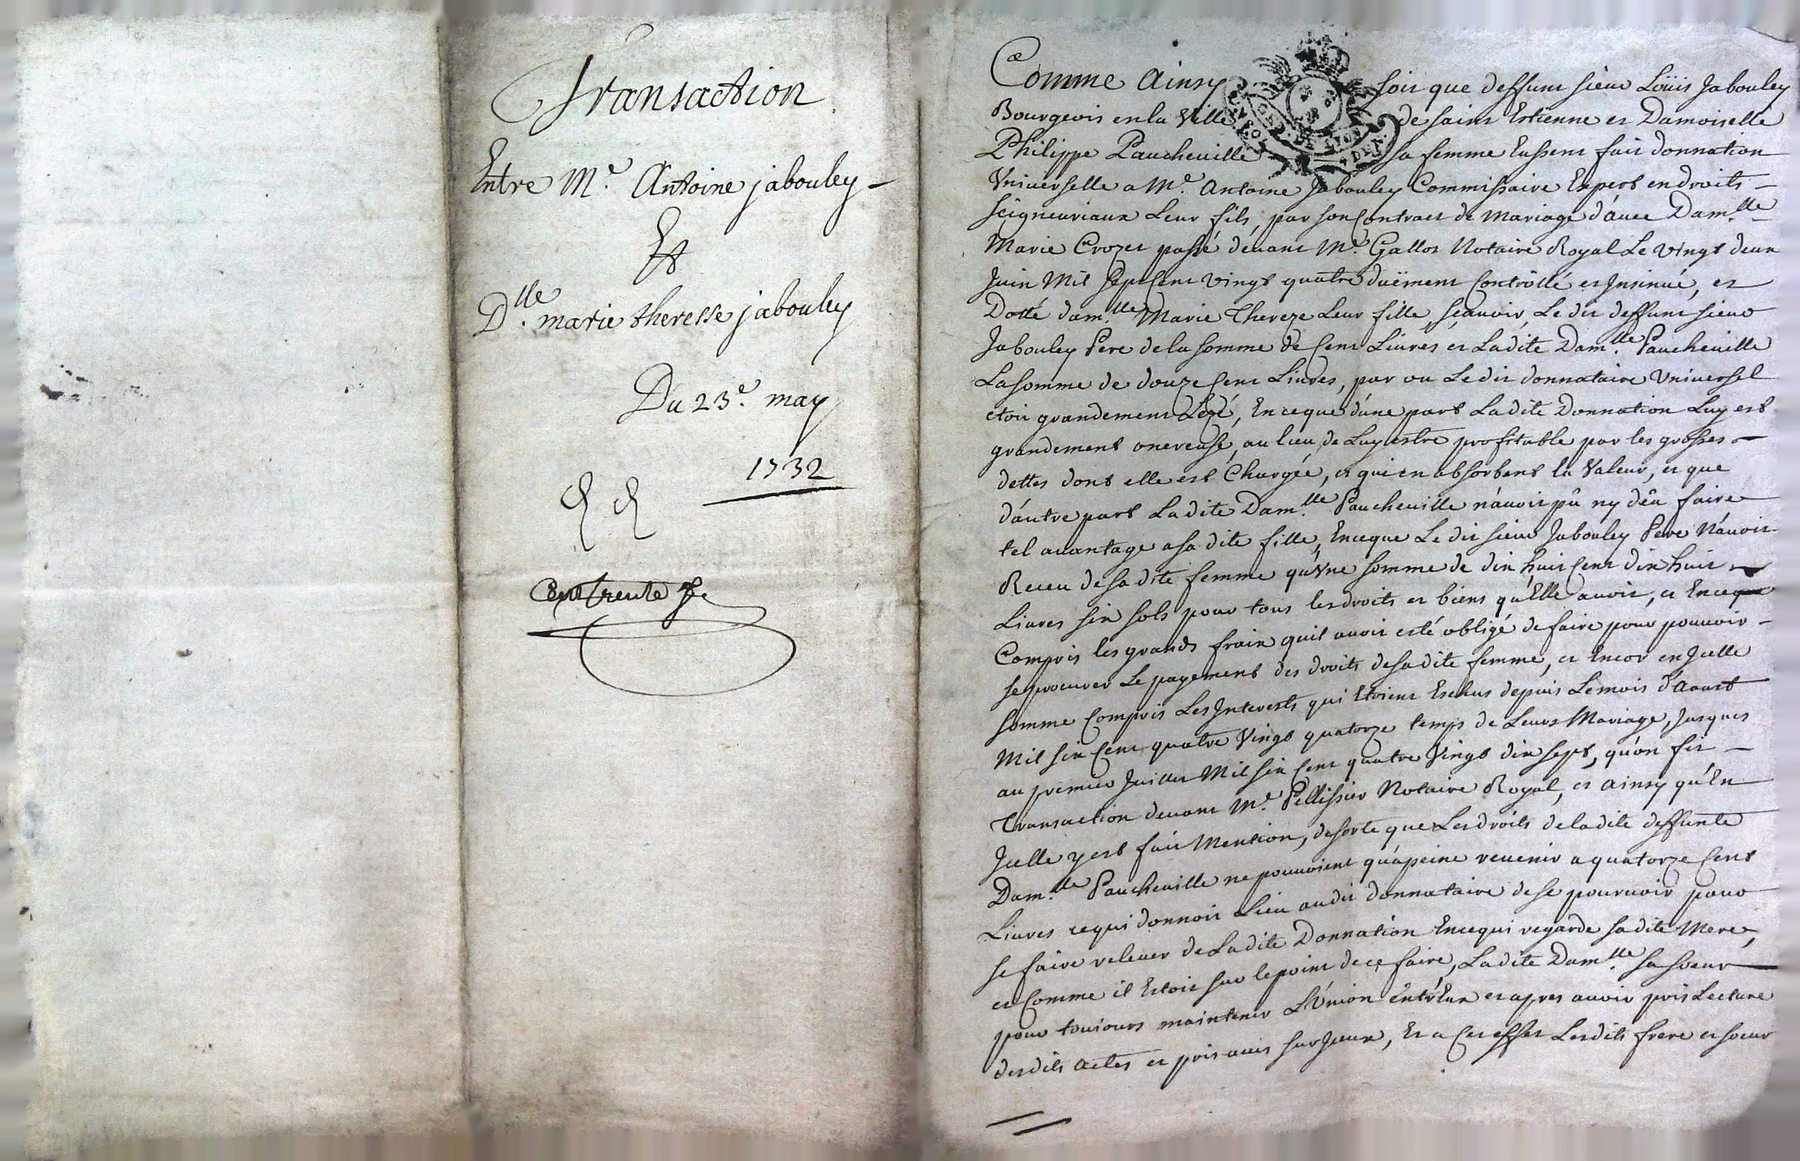 Transaction
Entre Me. Antoine jabouley
Et
Dlle. marie theresse jabouley
Du 23e. may
1732
Cent trente
Comme Ainsy soit que deffunt sieur Loüis Jabouley
Bourgeois en la Ville de saint Estienne et Damoiselle
Philippe Paucheuille sa femme Eussent fait donnation
Vniuerselle a Me. Antoine Jabouley Commissaire Expert en droits
seigneuriaux Leur fils, par son Contract de Mariage d'auec Damlle.
Marie Crozet passé deuant Me. Gallot Notaire Royal Le vingt deux
Juin Mil sept cent vingt quatre düement Contrôllé et Insinué, et
Dotté damlle Marie Thereze Leur fille, scauoir, Le dit deffunt sieur
Jabouley Pere de la somme de Cent Liures et Ladite Damlle. Paucheuille
La somme de douze Cent Liures, par ou Le dit donnataire Vniuersel
etoit grandement Lezé, En ce que d'une part Ladite Donnation Luy est
grandement onereuse, au lieu de Luy estre profitable par les grosses
dettes dont elle est Chargée, et qui en absorbent la Valeur, et que
d'autre part Ladite Damlle. Paucheuille n'auoit pû ny dêu faire
tel auantage a sa dite fille, En ce que Le dit sieur Jabouley Pere N'auoit
Receu de sa dite femme qu'vne somme de dix huit Cent dix huit
Liures six sols pour tous les droits et biens qu'Elle auoit, et En ce
Compris les grands fraix quil auoit esté obligé de faire pour pouuoir
se procurer Le payement des droits de sa dite femme, et Encor en Jcelle
somme Compris Les Interests qui Etoient Eschus depuis Le mois d'Aoust
Mil six Cent quatre Vingt quatorze temps de Leurs Mariage, Jusques
au premier Juillet Mil six Cent quatre Vingt dix sept, qu'on fit
Transaction deuant Me. Pellissier Notaire Royal, et ainsy qu'En
Jcelle y est fait Mention, de sorte que Les droits de la dite deffunte
Damlle Paucheuille ne pouuoient qu'a peine reuenir a quatorze Cent
Liures ce qui donnoit Lieu au dit donnataire de se pouruoir pour
se faire releuer de La dite Donnation En ce qui regarde sa dite Mere,
et Comme il Estoit sur le point de ce faire, La dite Damlle. sa soeur
pour toujours maintenir L'Vnion entr'Eux et apres auoir pris Lecture
des dits actes et pris auis sur Jceux, Et a Cet effet Les dits frere et soeur